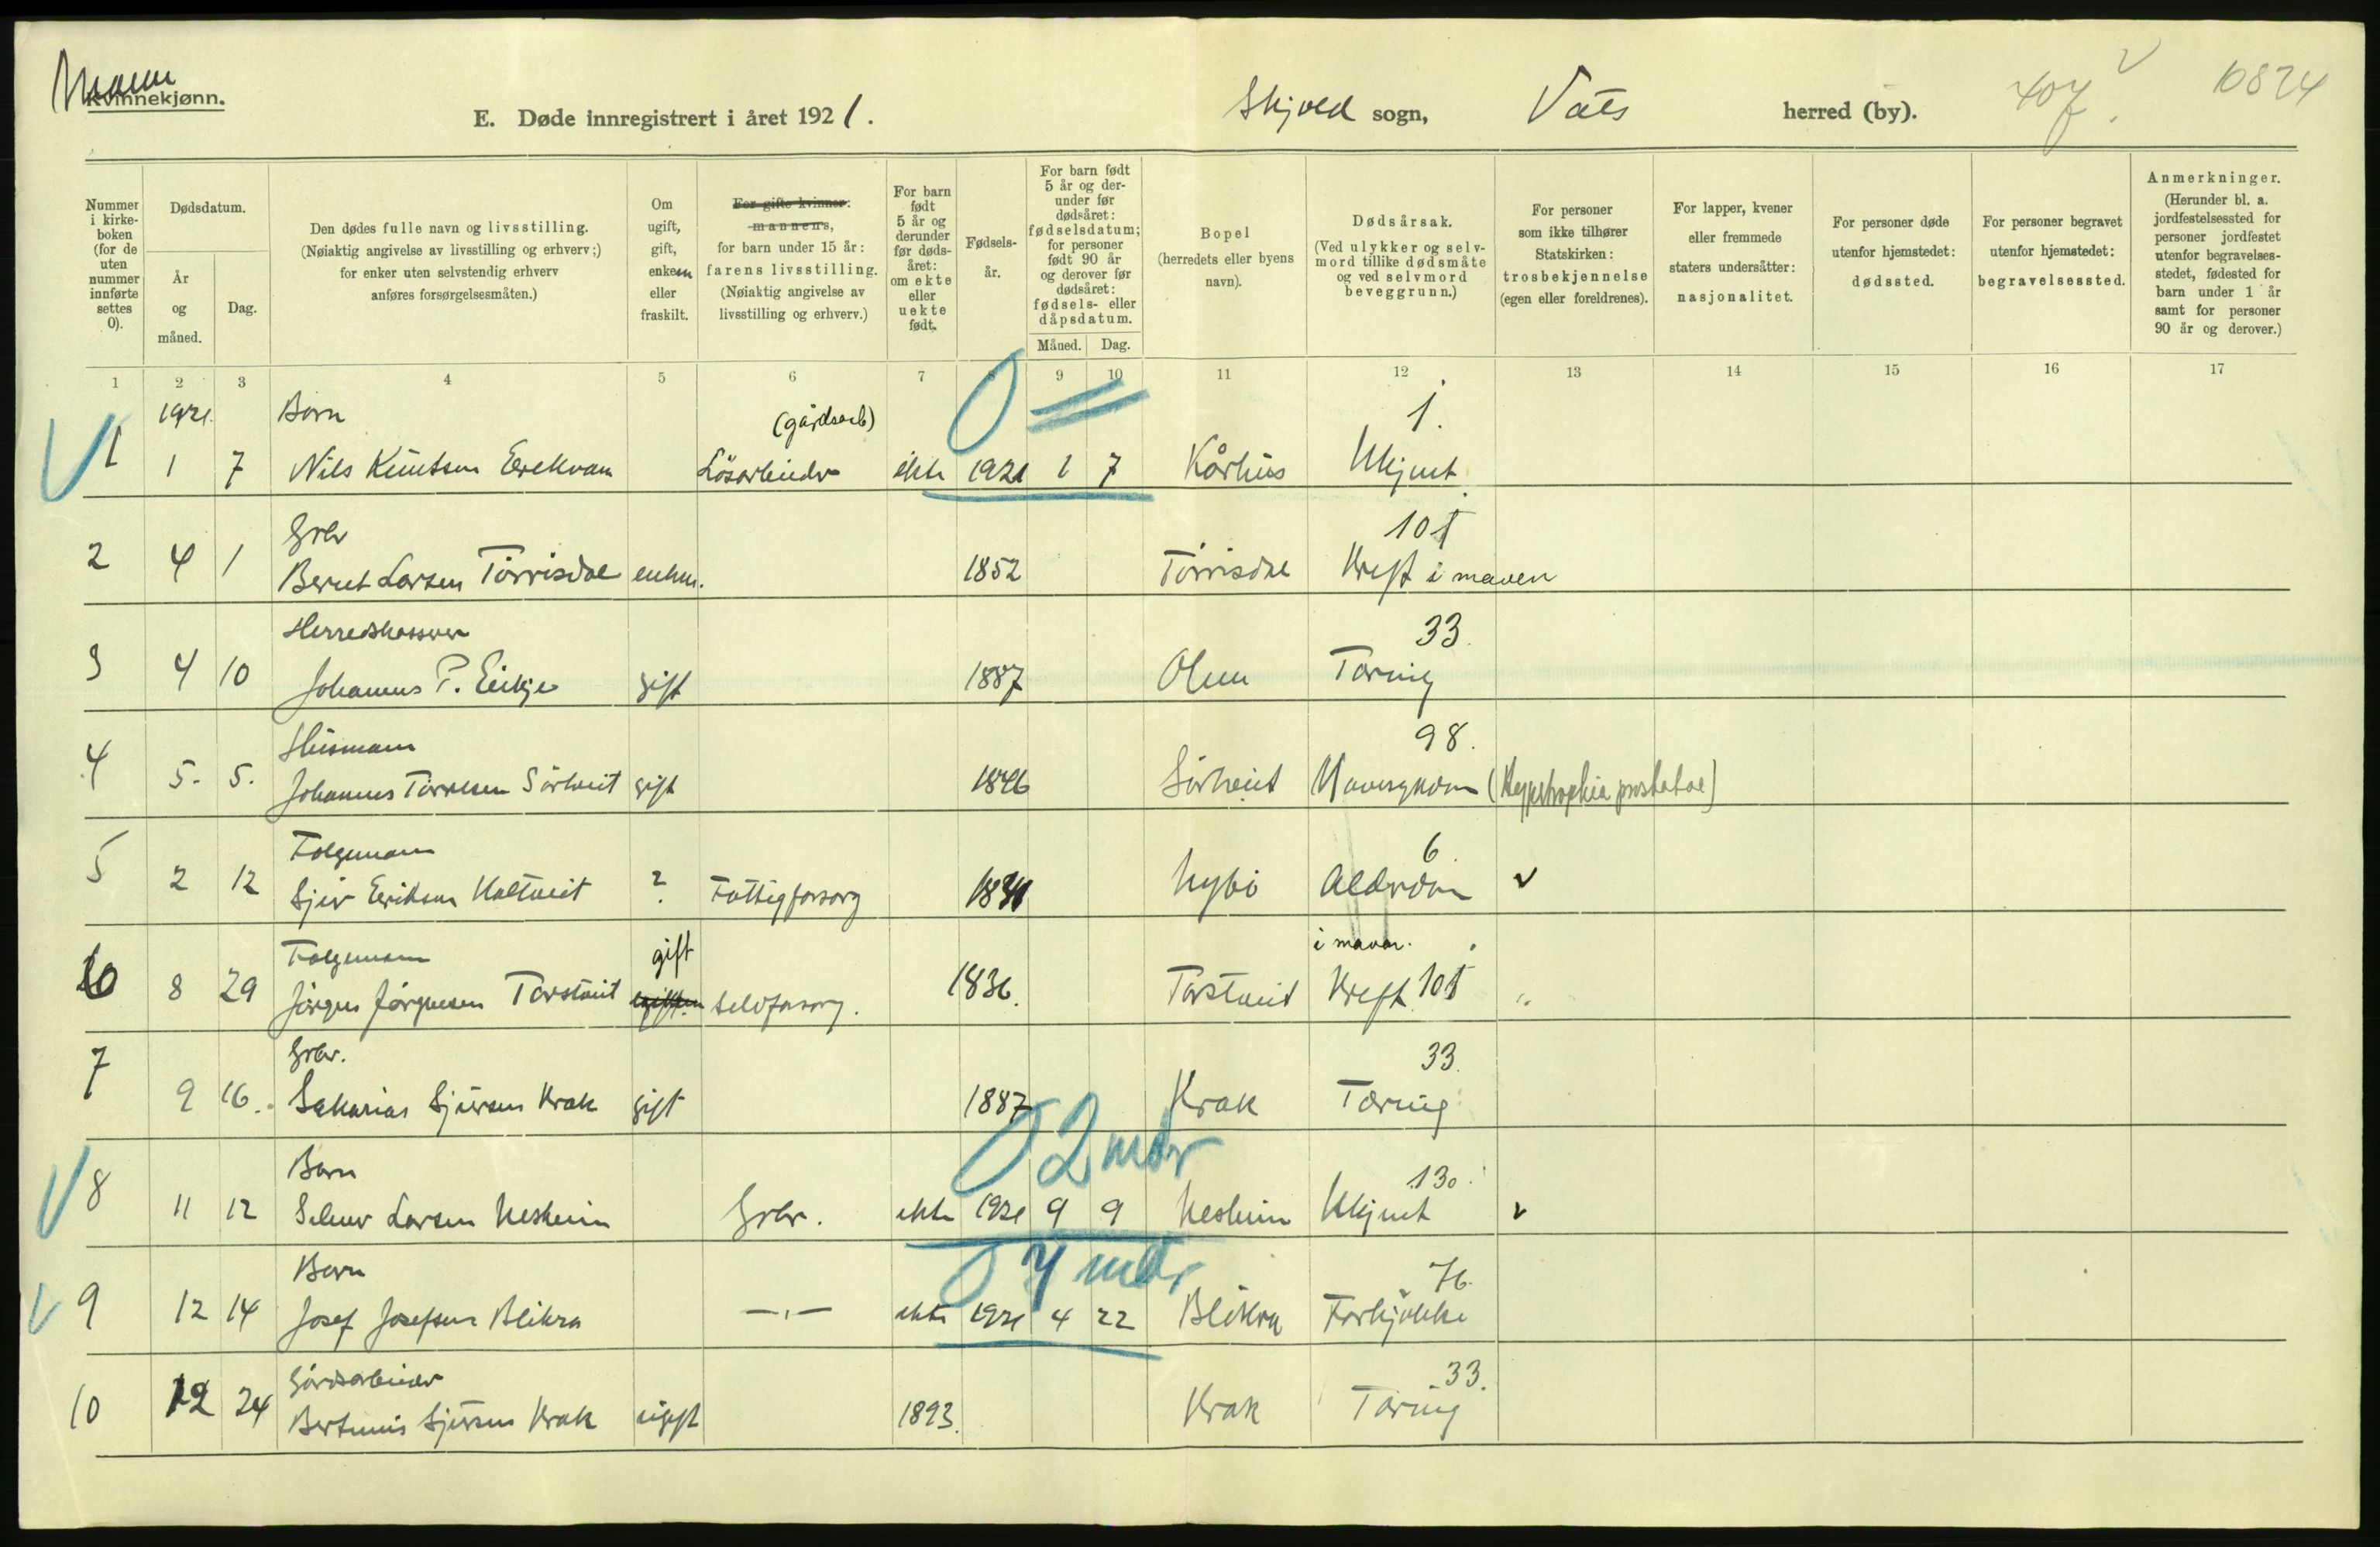 Mann
Kvinnekjønn.
E. Døde innregistrert i året 1921.
Skjold sogn, Vats herred (by).
407
10824
Nummer i kirkeboken (for de uten nummer innførte settes 0).
Dødsdatum.
År og måned.
Dag.
Den dødes fulle navn og livsstilling.
(Nøiaktig angivelse av livsstilling og erhverv;)
for enker uten selvstendig erhverv
anføres forsørgelsesmåten.)
Om ugift, gift, enkem eller fraskilt.
For gifte kvinner:
mannens,
for barn under 15 år:
farens livsstilling.
(Nøiaktig angivelse av
livsstilling og erhverv.)
For barn født 5 år og derunder før dødsåret: om ekte eller uekte født.
Fødselsår.
For barn født 5 år og derunder før dødsåret: fødselsdatum; for personer født 90 år og derover før dødsåret: fødsels- eller dåpsdatum.
Måned. Dag.
Bopel
(herredets eller byens
navn).
Dødsårsak.
(Ved ulykker og selvmord tillike dødsmåte og ved selvmord beveggrunn.)
For personer
som ikke tilhører
Statskirken:
trosbekjennelse
(egen eller foreldrenes).
For lapper, kvener
eller fremmede
staters undersåtter:
nasjonalitet.
For personer døde
utenfor hjemstedet:
dødssted.
For personer begravet
utenfor hjemstedet:
begravelsessted.
Anmerkninger.
(Herunder bl. a. jordfestelsessted for personer jordfestet utenfor begravelsesstedet, fødested for barn under 1 år samt for personer 90 år og derover.)
1 2 3 4 5 6 7 8 9 10 11 12 13 14 15 16 17
1921. Barn (gårdsarb) 0 1.
1 1 7 Nils Knutsen Erekvam Lösarbeider ekte 1921 1 7 Kårhus Ukjent
Grbr 10 t
2 4 1 Bernt Larsen Törrisdal enkm. 1852 Törrisdal Kreft i maven
Herredskasserer 33.
3 4 10 Johannes P. Eikje gift 1887 Ølen Tæring
Husmann 98.
4 5. 5. Johannes Törresen Sörtveit gift 1846 (Hypertrophia prostatae)
Folgemann 6.
5 2 12 Sjur Eriksen ? Fattigforsorg Nybö Alderdom
Folgemann gift i maven.
8 29 Jörgen Jörgensen Torstveit selvforsorg. 1836. Torstveit Kreft 10 t
Grbr. 33.
7 9 16. Sakarias Sjursen Krak gift 1887 Krak Tæring
Barn 0 2 mdr 130.
8 11 12 Larsen Nesheim Grbr. ekte 1921 9 9 Nesheim Ukjent
Barn 0 7 mdr 76.
9 12 14 Josef Josefsen Blikra —,,— ekte 1921 4 22 Blikra Forkjölelse
Gårdsarbeider 33.
10 12 24 Bertinius Sjursen Krak ugift 1893. Krak Tæring